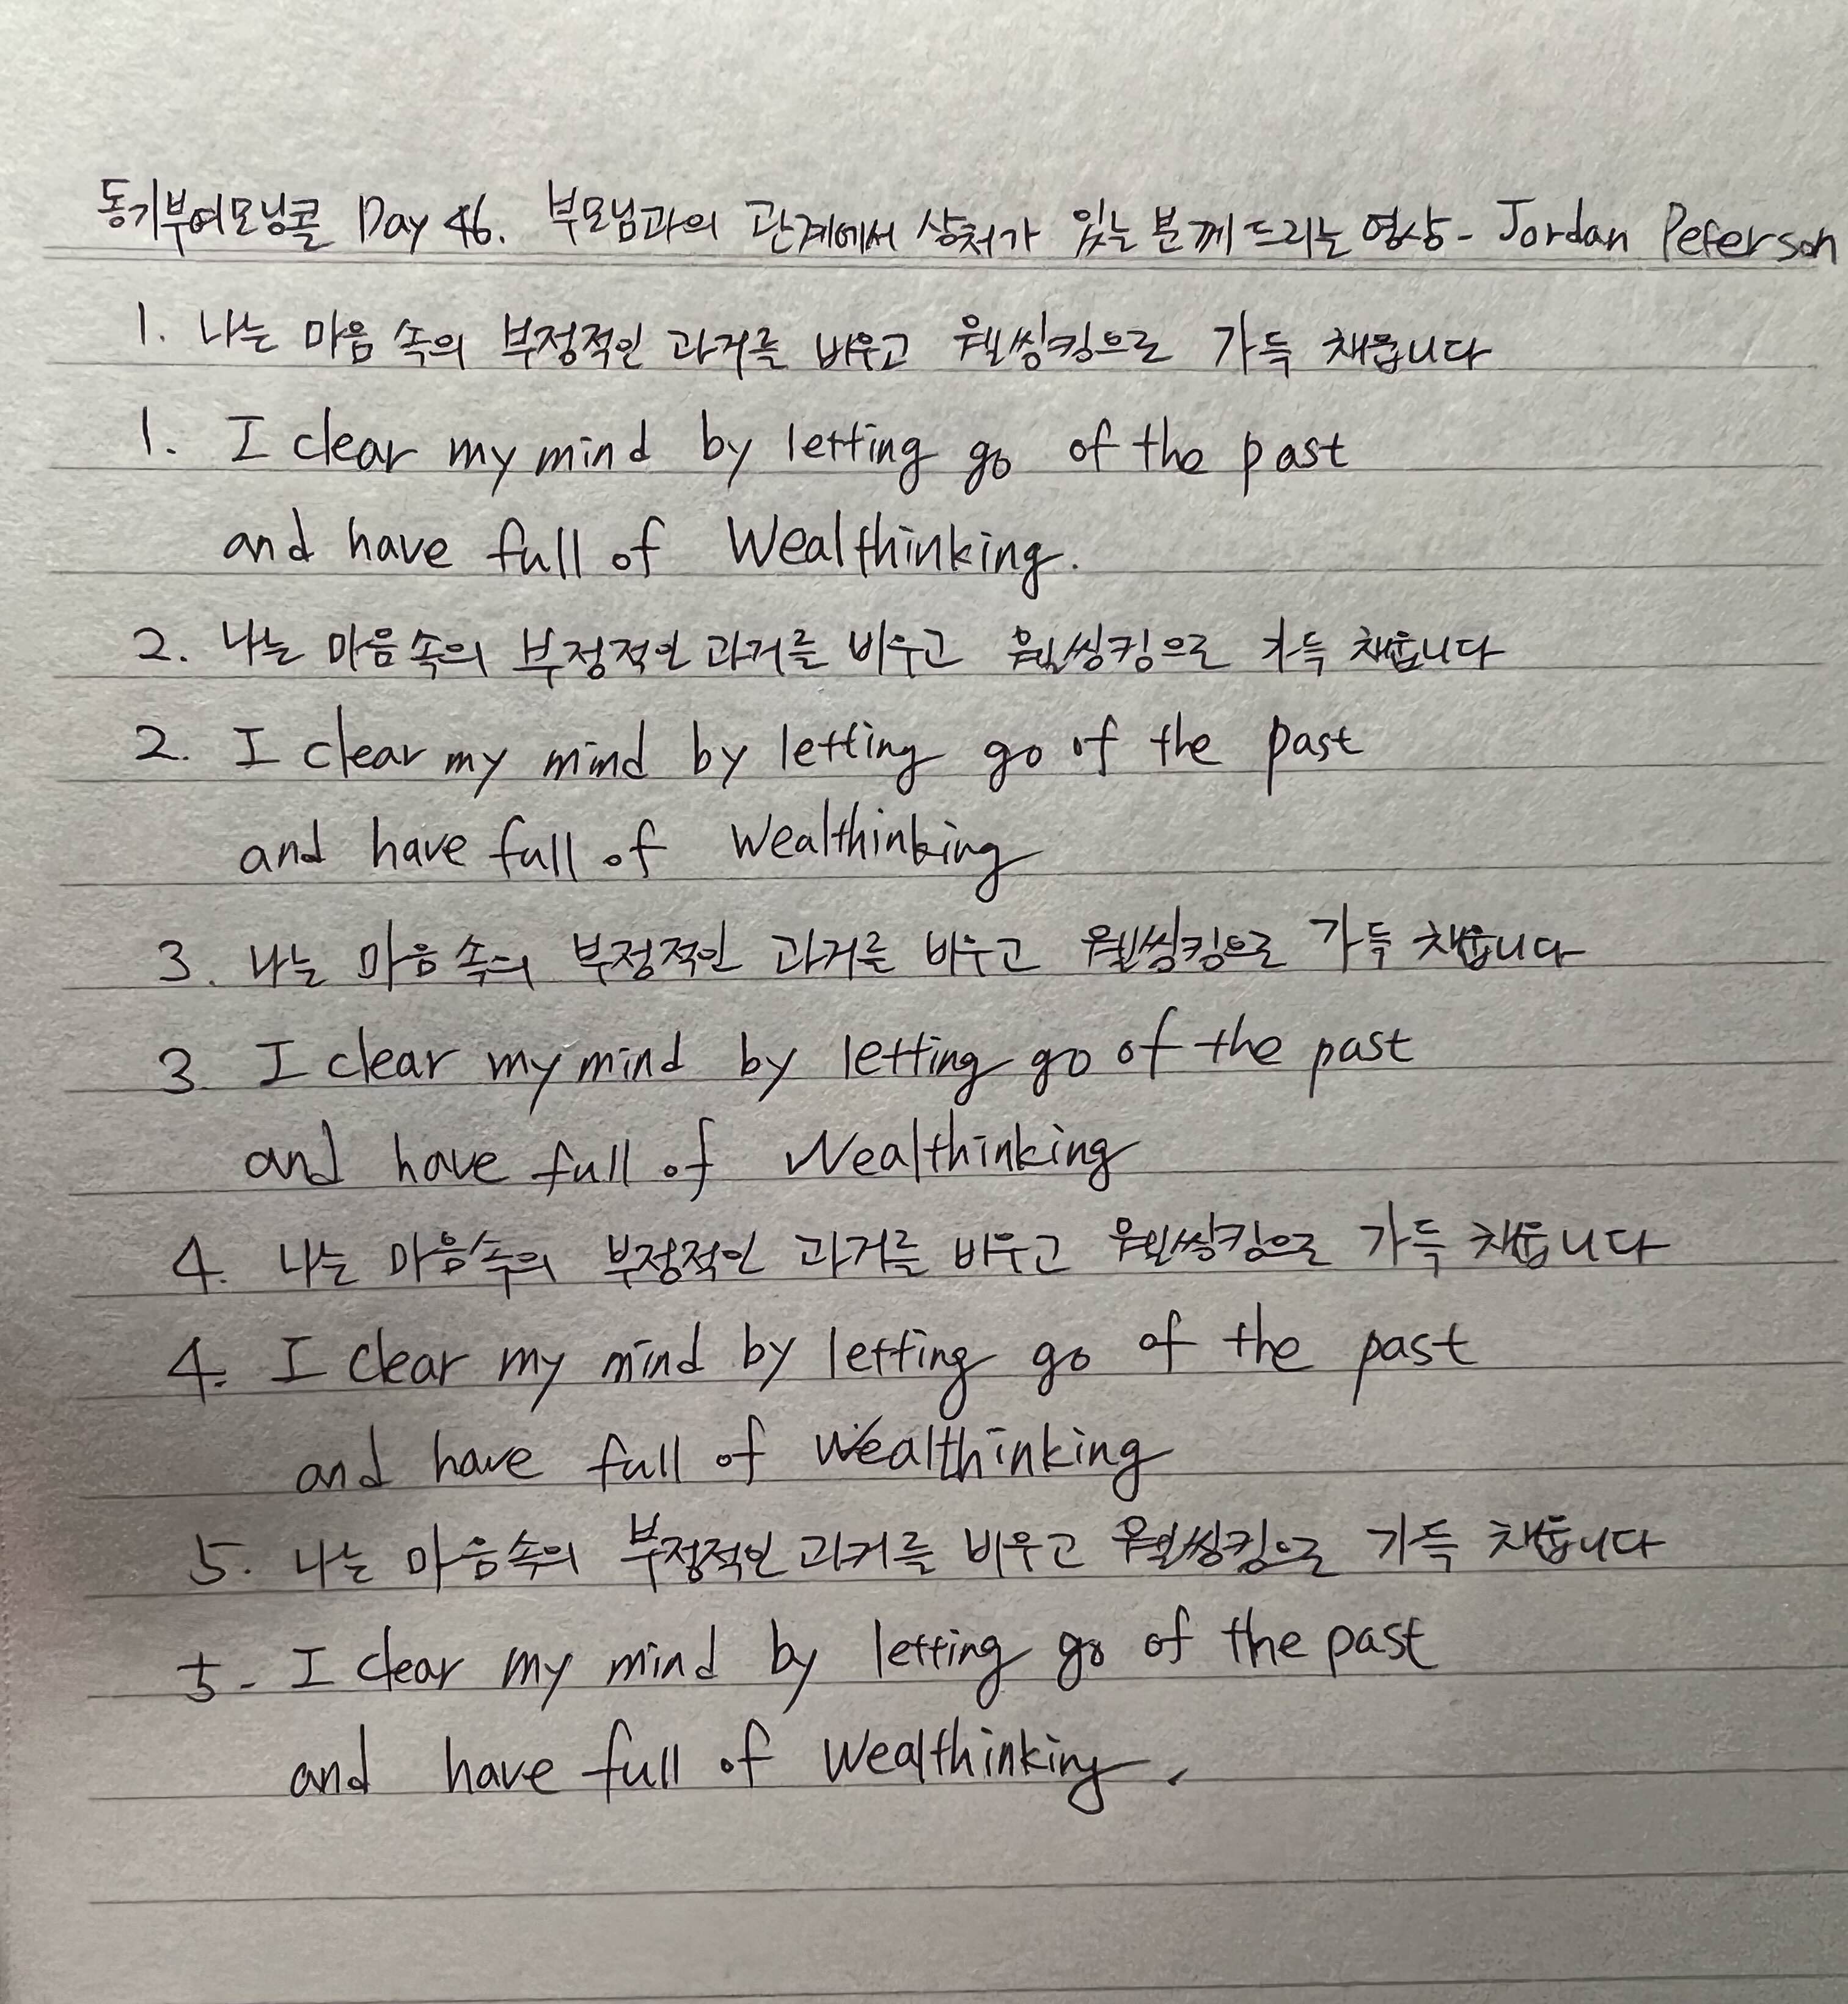 동기부여모닝콜 Day 46. 부모님과의 관계에서 상처가 있는 분께 드리는 영상 - Jordan Peterson
1. 나는 마음 속의 부정적인 과거를 비우고 웰씽킹으로 가득 채웁니다
1. I clear my mind by letting go of the past
and have full of Wealthinking.
2. 나는 마음 속의 부정적인 과거를 비우고 웰씽킹으로 가득 채웁니다
2. I clear my mind by letting go of the past
and have full of Wealthinking
3. 나는 마음 속의 부정적인 과거를 비우고 웰씽킹으로 가득 채웁니다
3 I clear my mind by letting go of the past
and have full of Wealthinking
4. 나는 마음속의 부정적인 과거를 비우고 웰씽킹으로 가득 채웁니다
4. I clear my mind by letting go of the past
and have full of Wealthinking
5. 나는 마음속의 부정적인 과거를 비우고 웰씽킹으로 가득 채웁니다
5- I clear my mind by letting go of the past
and have full of Wealthinking.